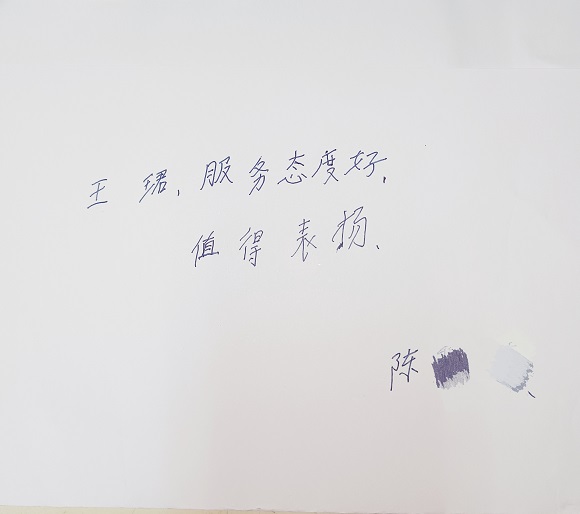 王珺、服务态度好、
值得表扬、
陈